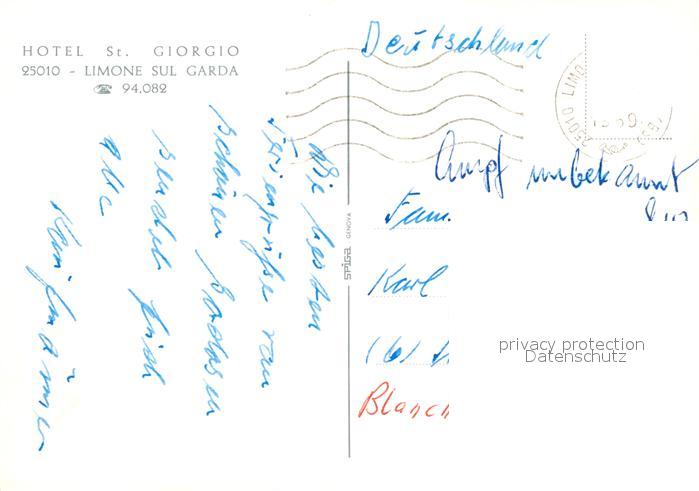 HOTEL St. GIORGIO
25010 - LIMONE SUL GARDA
☎ 94.082
Die besten
Feriengrüße vom
schönen Gardasee
sendet Euch
Alle
Deutschland
25010 LIMO
Empf unbekannt
Fam.
Karl
Blanc
spiga GENOVA
privacy protection
Datenschutz